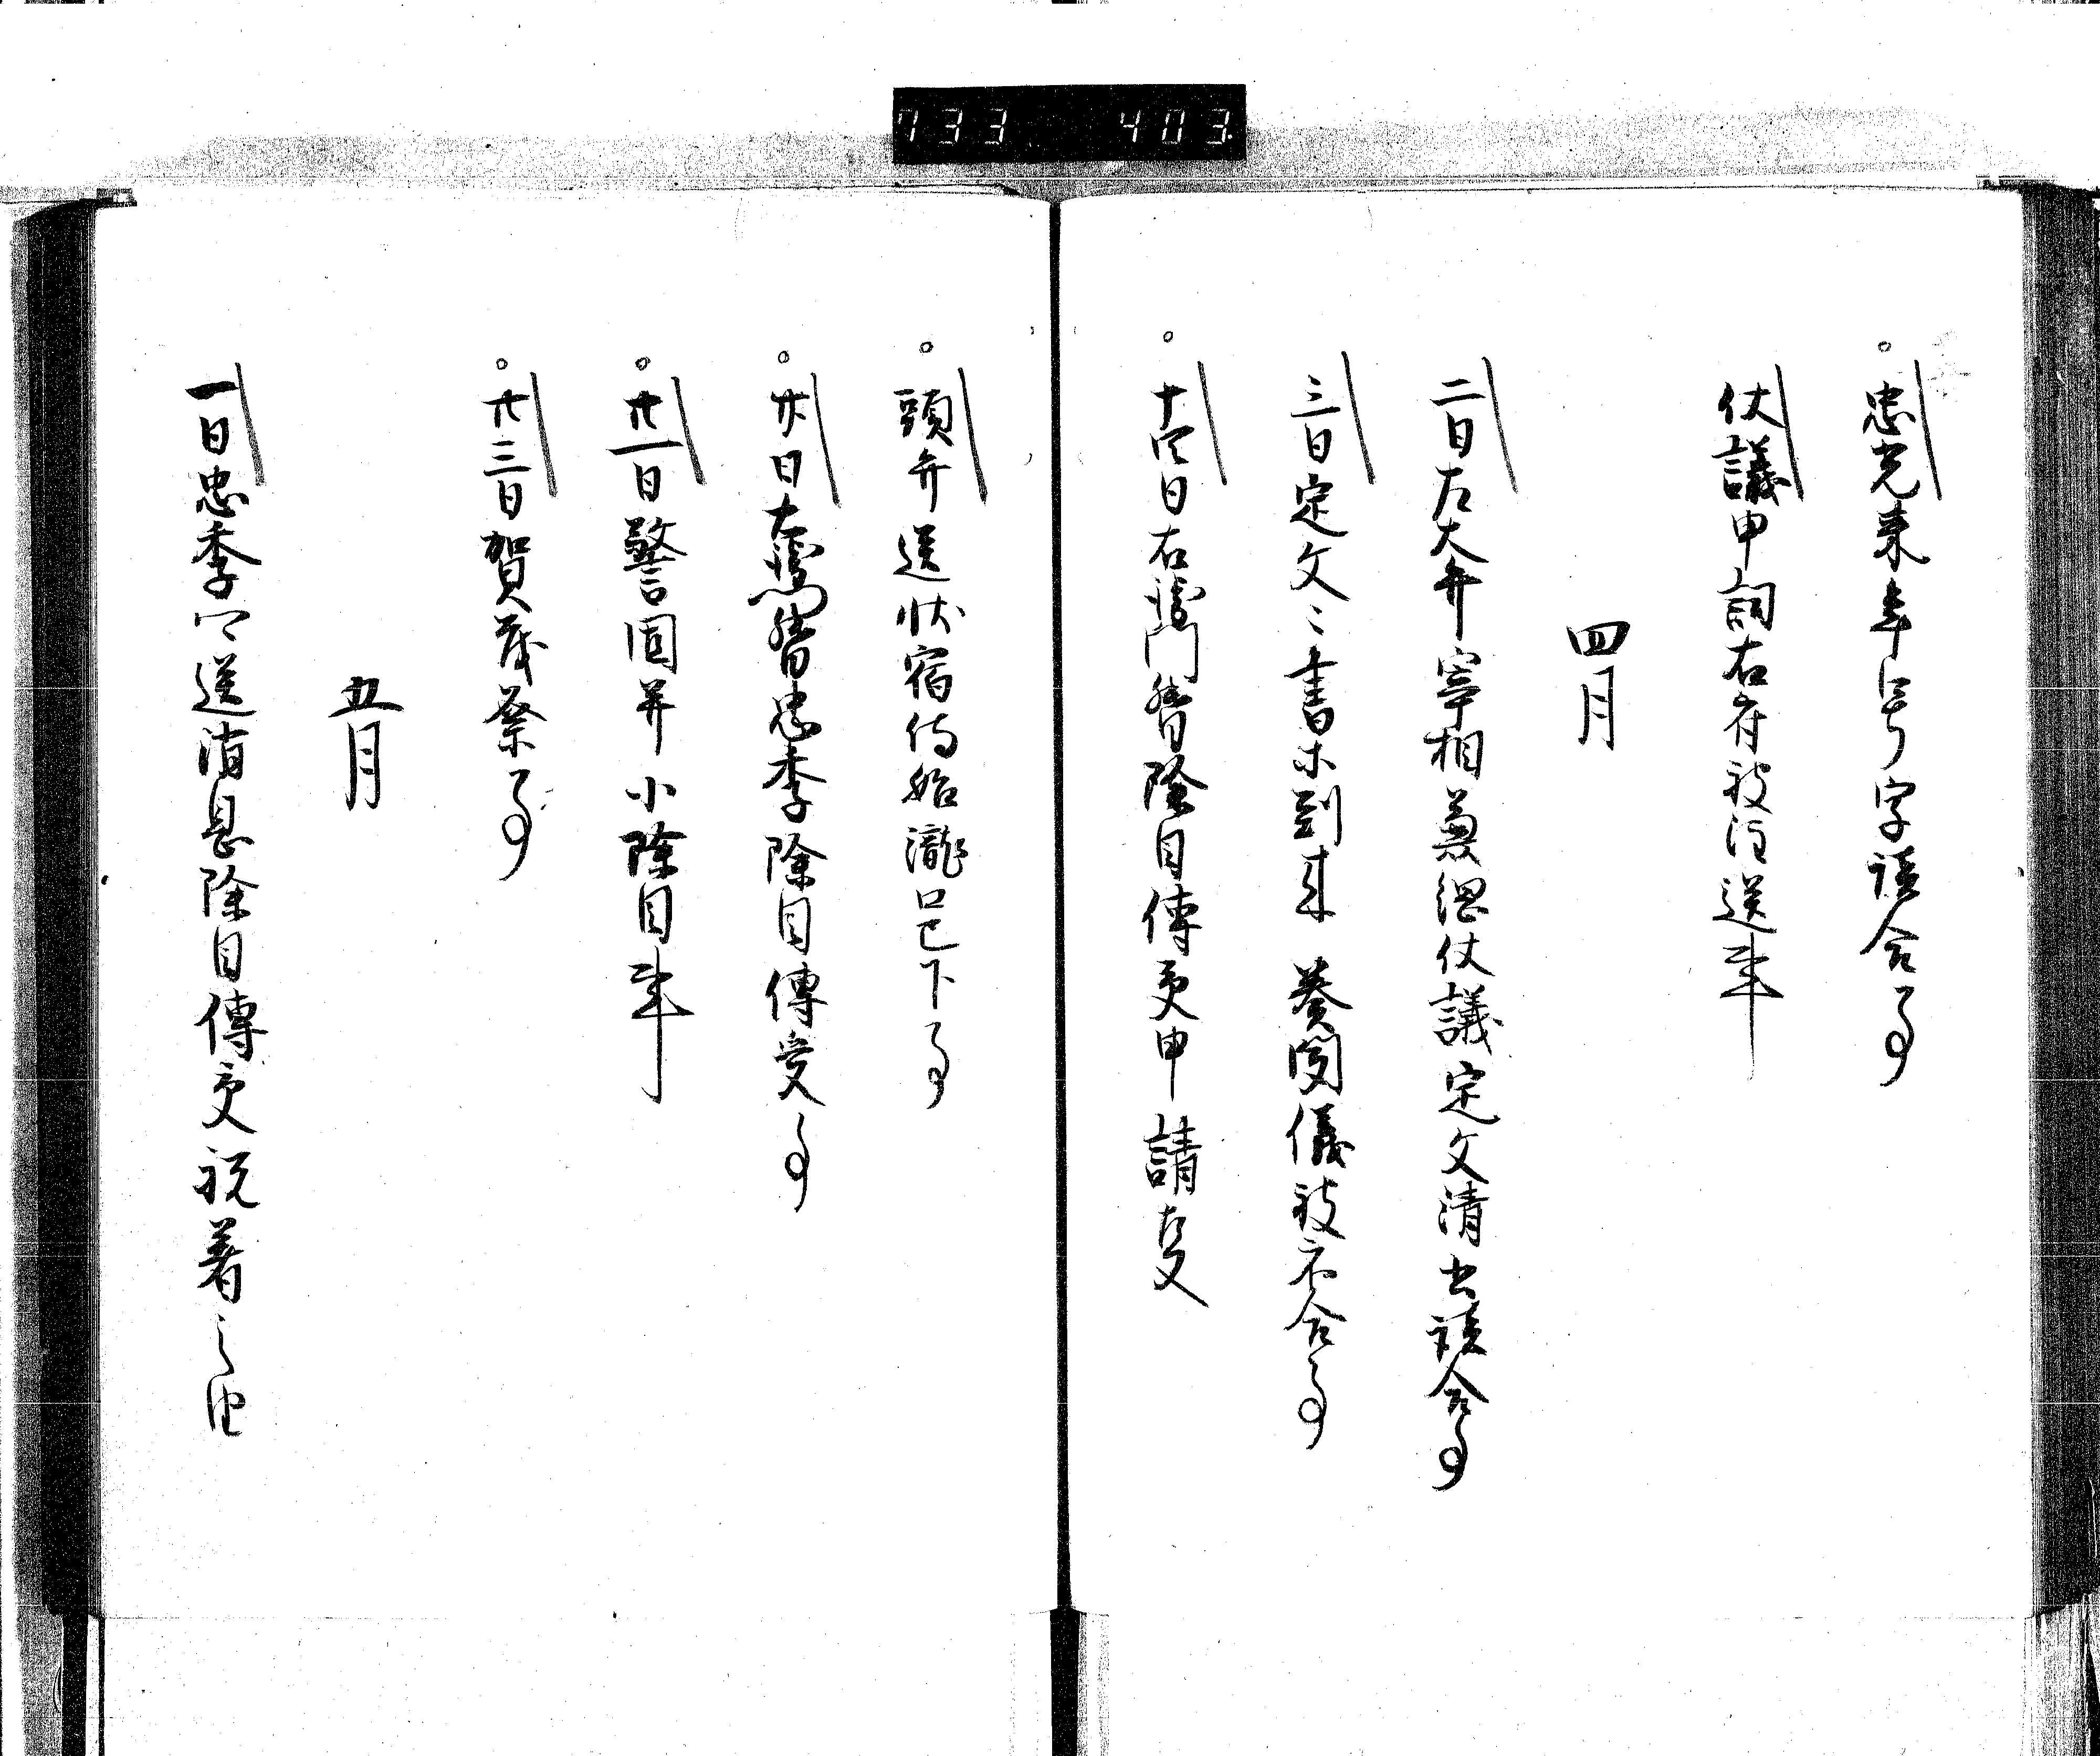 733 403
。忠光来年号字談合事
仗議申詞右府被送事
四月
二日左大弁宰相兼綱仗議定文清書談合事
三日定文々書等到来 奏聞儀被示合事
。十四日右衛門督除目傳受申請事
。頭弁送状宿侍始瀧口已下事
。廿日右衛門督忠季除目傳受事
。廿一日警固并小除目事
。廿三日賀茂祭事
五月
一日忠季卿送消息除目傳受祝着之由